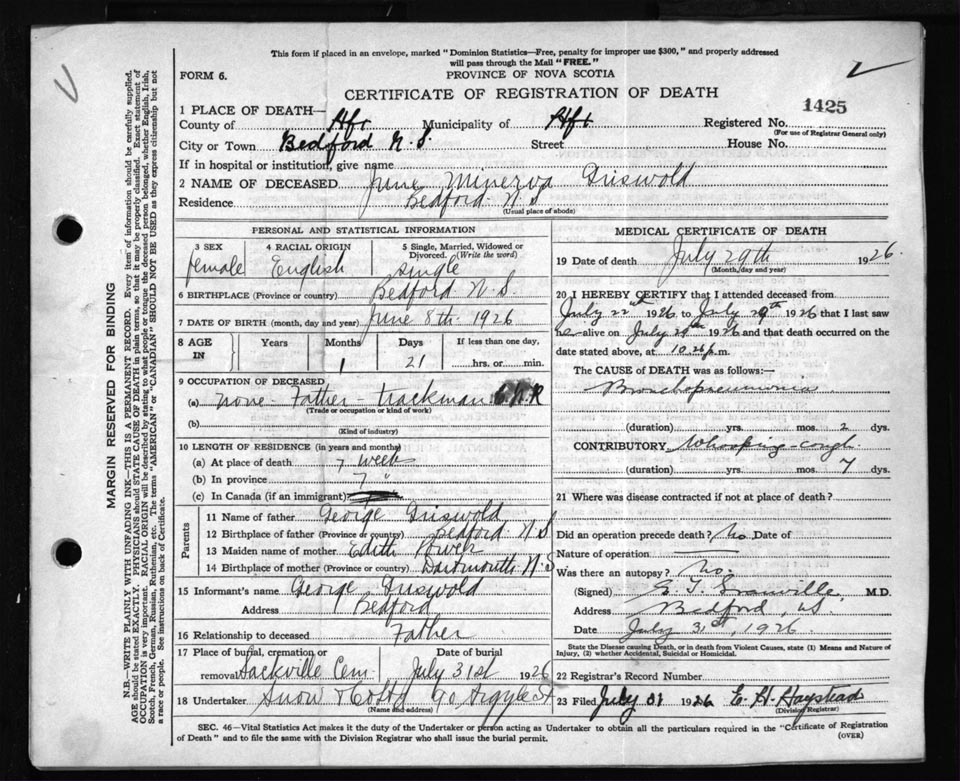 This form if placed in an envelope, marked "Dominion Statistics—Free, penalty for improper use $300," and properly addressed
will pass through the Mail "FREE."
FORM 6.
PROVINCE OF NOVA SCOTIA
CERTIFICATE OF REGISTRATION OF DEATH
1425
1 PLACE OF DEATH—
County of Hfx Municipality of Hfx Registered No.
(For use of Registrar General only)
City or Town Bedford N.S. Street House No.
If in hospital or institution, give name
2 NAME OF DECEASED June Minerva Griswold
Residence Bedford N.S
(Usual place of abode)
PERSONAL AND STATISTICAL INFORMATION
3 SEX 4 RACIAL ORIGIN 5 Single, Married, Widowed or Divorced. (Write the word)
female English single
6 BIRTHPLACE (Province or country) Bedford N.S.
7 DATE OF BIRTH (month, day and year) June 8th. 1926
8 AGE IN Years Months Days If less than one day,
1 21 hrs. or min.
9 OCCUPATION OF DECEASED
(a) none - Father - trackman C.N.R
(Trade or occupation or kind of work)
(b)
(Kind of industry)
10 LENGTH OF RESIDENCE (in years and months)
(a) At place of death 7 week
(b) In province 7 "
(c) In Canada (if an immigrant)
Parents
11 Name of father George Griswold
12 Birthplace of father (Province or country) Bedford N.S
13 Maiden name of mother Edith Power
14 Birthplace of mother (Province or country) Dartmouth N.S
15 Informant's name George Griswold
Address Bedford
16 Relationship to deceased Father
17 Place of burial, cremation or removal Date of burial
Sackville Cem July 31st 1926
18 Undertaker Snow & Co Ltd 90 Argyle St
(Name and address)
MEDICAL CERTIFICATE OF DEATH
19 Date of death July 29th 1926.
(Month, day and year)
20 I HEREBY CERTIFY that I attended deceased from
July 22nd 1926 to July 29th 1926 that I last saw
alive on July 29th 1926 and that death occurred on
date stated above, at 10.20 p.m.
The CAUSE of DEATH was as follows:—
Bronchopneumonia
(duration) yrs. mos. 2 dys.
CONTRIBUTORY Whooping-cough
(duration) yrs. mos. 7 dys.
21 Where was disease contracted if not at place of death?
Did an operation precede death? No Date of
Nature of operation
Was there an autopsy? No.
(Signed) M.D.
Address Bedford, N.S.
Date July 31st, 1926.
State the Disease causing Death, or in death from Violent Causes, state (1) Means and Nature of
Injury, (2) whether Accidental, Suicidal or Homicidal.
22 Registrar's Record Number
23 Filed July 31 1926 E. H. Haystead
(Division Registrar)
SEC. 46—Vital Statistics Act makes it the duty of the Undertaker or person acting as Undertaker to obtain all the particulars required in the "Certificate of Registration
of Death" and to file the same with the Division Registrar who shall issue the burial permit.
(OVER)
MARGIN RESERVED FOR BINDING
N.B.—WRITE PLAINLY WITH UNFADING INK—THIS IS A PERMANENT RECORD. Every item of information should be carefully supplied.
AGE should be stated EXACTLY. PHYSICIANS should STATE CAUSE OF DEATH in plain terms, so that it may be properly classified. Exact statement of
OCCUPATION is very important. RACIAL ORIGIN will be described by stating to what people or tongue the deceased person belonged, whether English, Irish,
Scotch, French, German, Russian, Ruthenian, etc. The terms "AMERICAN" or "CANADIAN" SHOULD NOT BE USED as they express citizenship but not
a race or people. See instructions on back of Certificate.